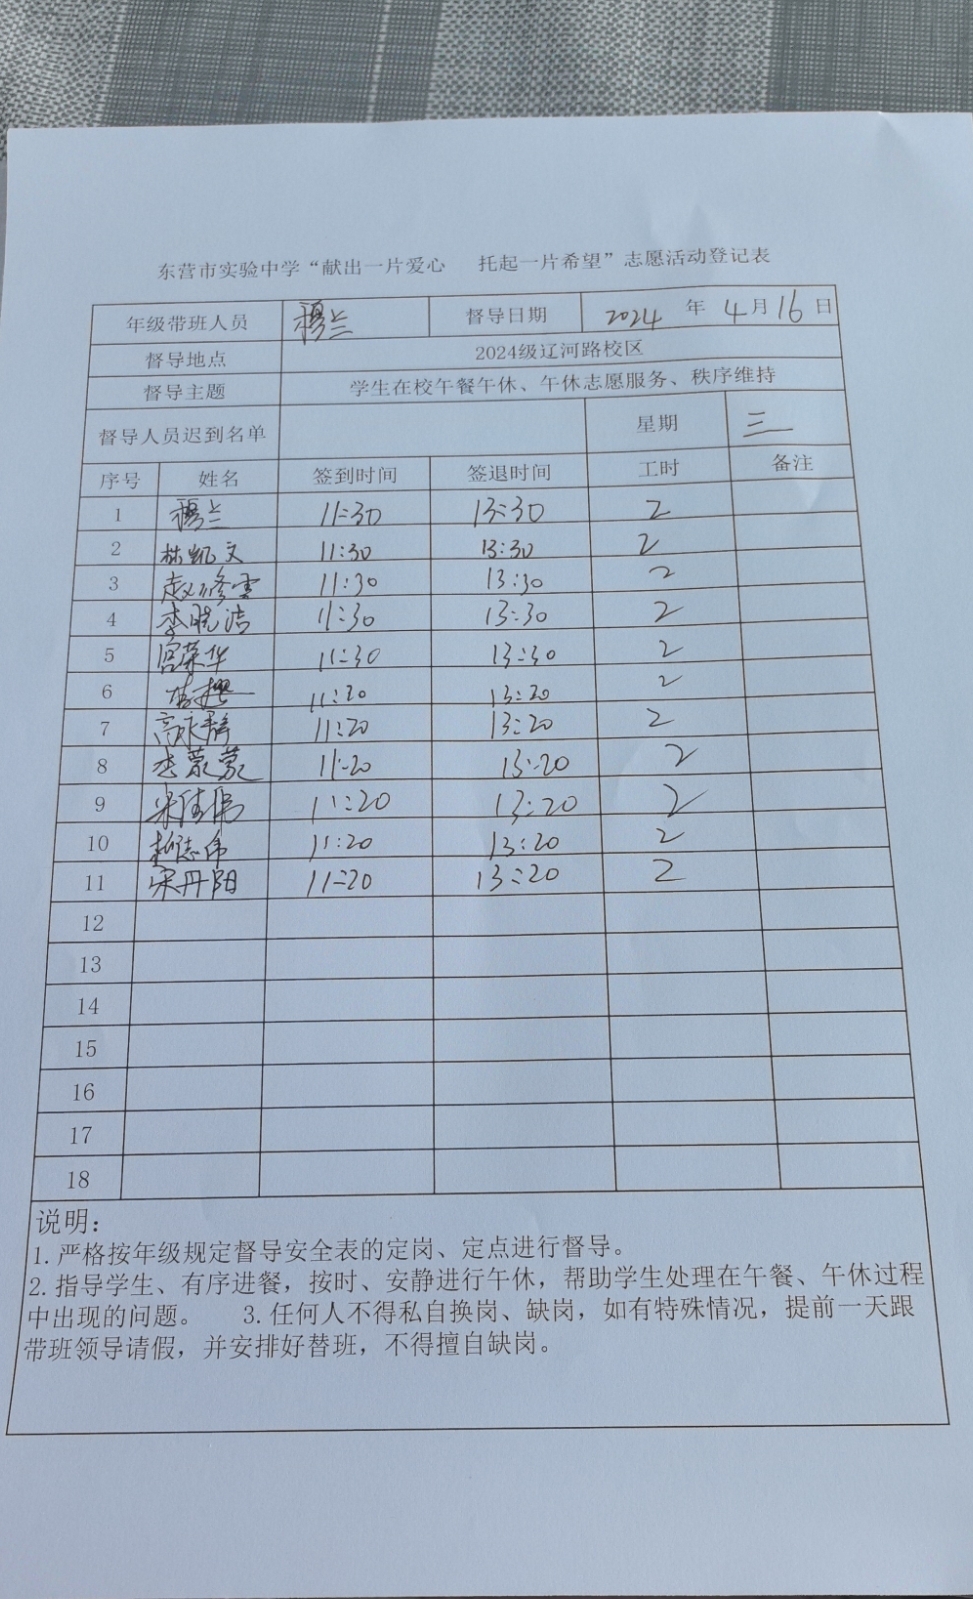 东营市实验中学“献出一片爱心 托起一片希望”志愿活动登记表
年级带班人员 穆兰 督导日期 2024 年 4 月 16 日
督导地点 2024级辽河路校区
督导主题 学生在校午餐午休、午休志愿服务、秩序维持
督导人员迟到名单 星期 三
序号 姓名 签到时间 签退时间 工时 备注
1 穆兰 11:30 13:30 2
2 林凯文 11:30 13:30 2
3 赵修雪 11:30 13:30 2
4 李晓洁 11:30 13:30 2
5 宫荣华 11:30 13:30 2
6 11:20 13:20 2
7 高永静 11:20 13:20 2
8 李蒙蒙 11:20 13:20 2
9 宋佳伟 11:20 13:20 2
10 志伟 11:20 13:20 2
11 宋丹阳 11:20 13:20 2
12
13
14
15
16
17
18
说明：
1.严格按年级规定督导安全表的定岗、定点进行督导。
2.指导学生、有序进餐，按时、安静进行午休，帮助学生处理在午餐、午休过程
中出现的问题。 3.任何人不得私自换岗、缺岗，如有特殊情况，提前一天跟
带班领导请假，并安排好替班，不得擅自缺岗。